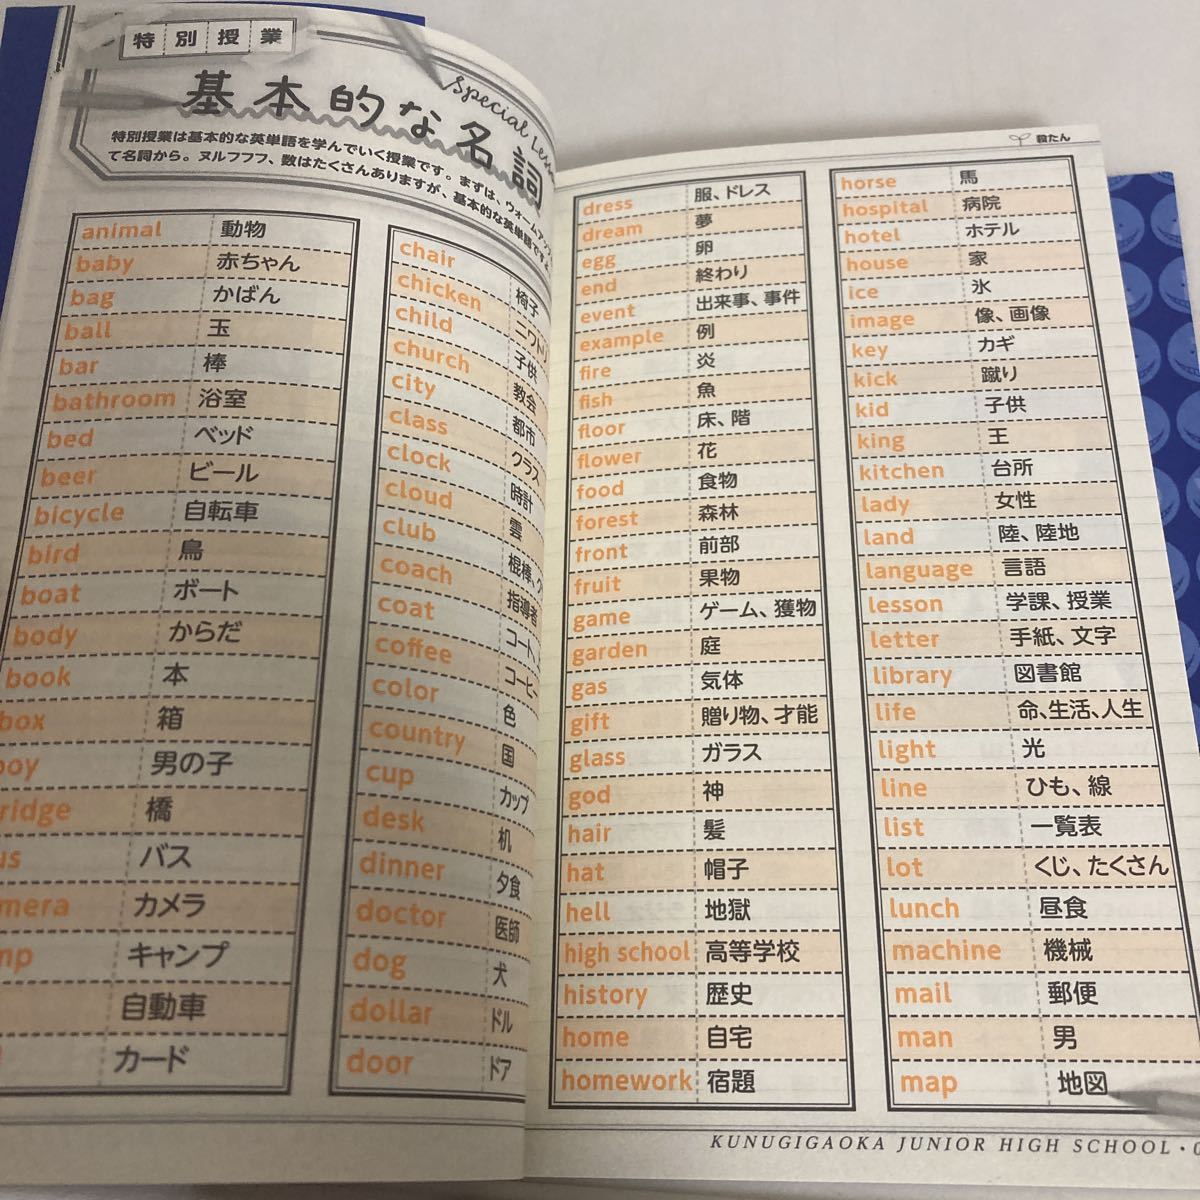 特別授業
基本的な名詞
Special
特別授業は基本的な英単語を学んでいく授業です。まずは、ウォームアップ
て名詞から。ヌルフフフ、数はたくさんありますが、基本的な英単語ですよ
animal 動物
baby 赤ちゃん
bag かばん
ball 玉
bar 棒
bathroom 浴室
bed ベッド
beer ビール
bicycle 自転車
bird 鳥
boat ボート
body からだ
book 本
box 箱
boy 男の子
ridge 橋
us バス
mera カメラ
mp キャンプ
自動車
カード
chair 椅子
chicken ニワトリ
child 子供
church 教会
city 都市
class クラス
clock 時計
cloud 雲
club 棍棒、ク
coach 指導者
coat コート、
coffee コーヒー
color 色
country 国
cup カップ
desk 机
dinner 夕食
doctor 医師
dog 犬
dollar ドル
door ドア
殺たん
dress 服、ドレス
dream 夢
egg 卵
end 終わり
event 出来事、事件
example 例
fire 炎
fish 魚
floor 床、階
flower 花
food 食物
forest 森林
front 前部
fruit 果物
game ゲーム、獲物
garden 庭
gas 気体
gift 贈り物、才能
glass ガラス
god 神
hair 髪
hat 帽子
hell 地獄
high school 高等学校
history 歴史
home 自宅
homework 宿題
horse 馬
hospital 病院
hotel ホテル
house 家
ice 氷
image 像、画像
key カギ
kick 蹴り
kid 子供
king 王
kitchen 台所
lady 女性
land 陸、陸地
language 言語
lesson 学課、授業
letter 手紙、文字
library 図書館
life 命、生活、人生
light 光
line ひも、線
list 一覧表
lot くじ、たくさん
lunch 昼食
machine 機械
mail 郵便
man 男
map 地図
KUNUGIGAOKA JUNIOR HIGH SCHOOL・0